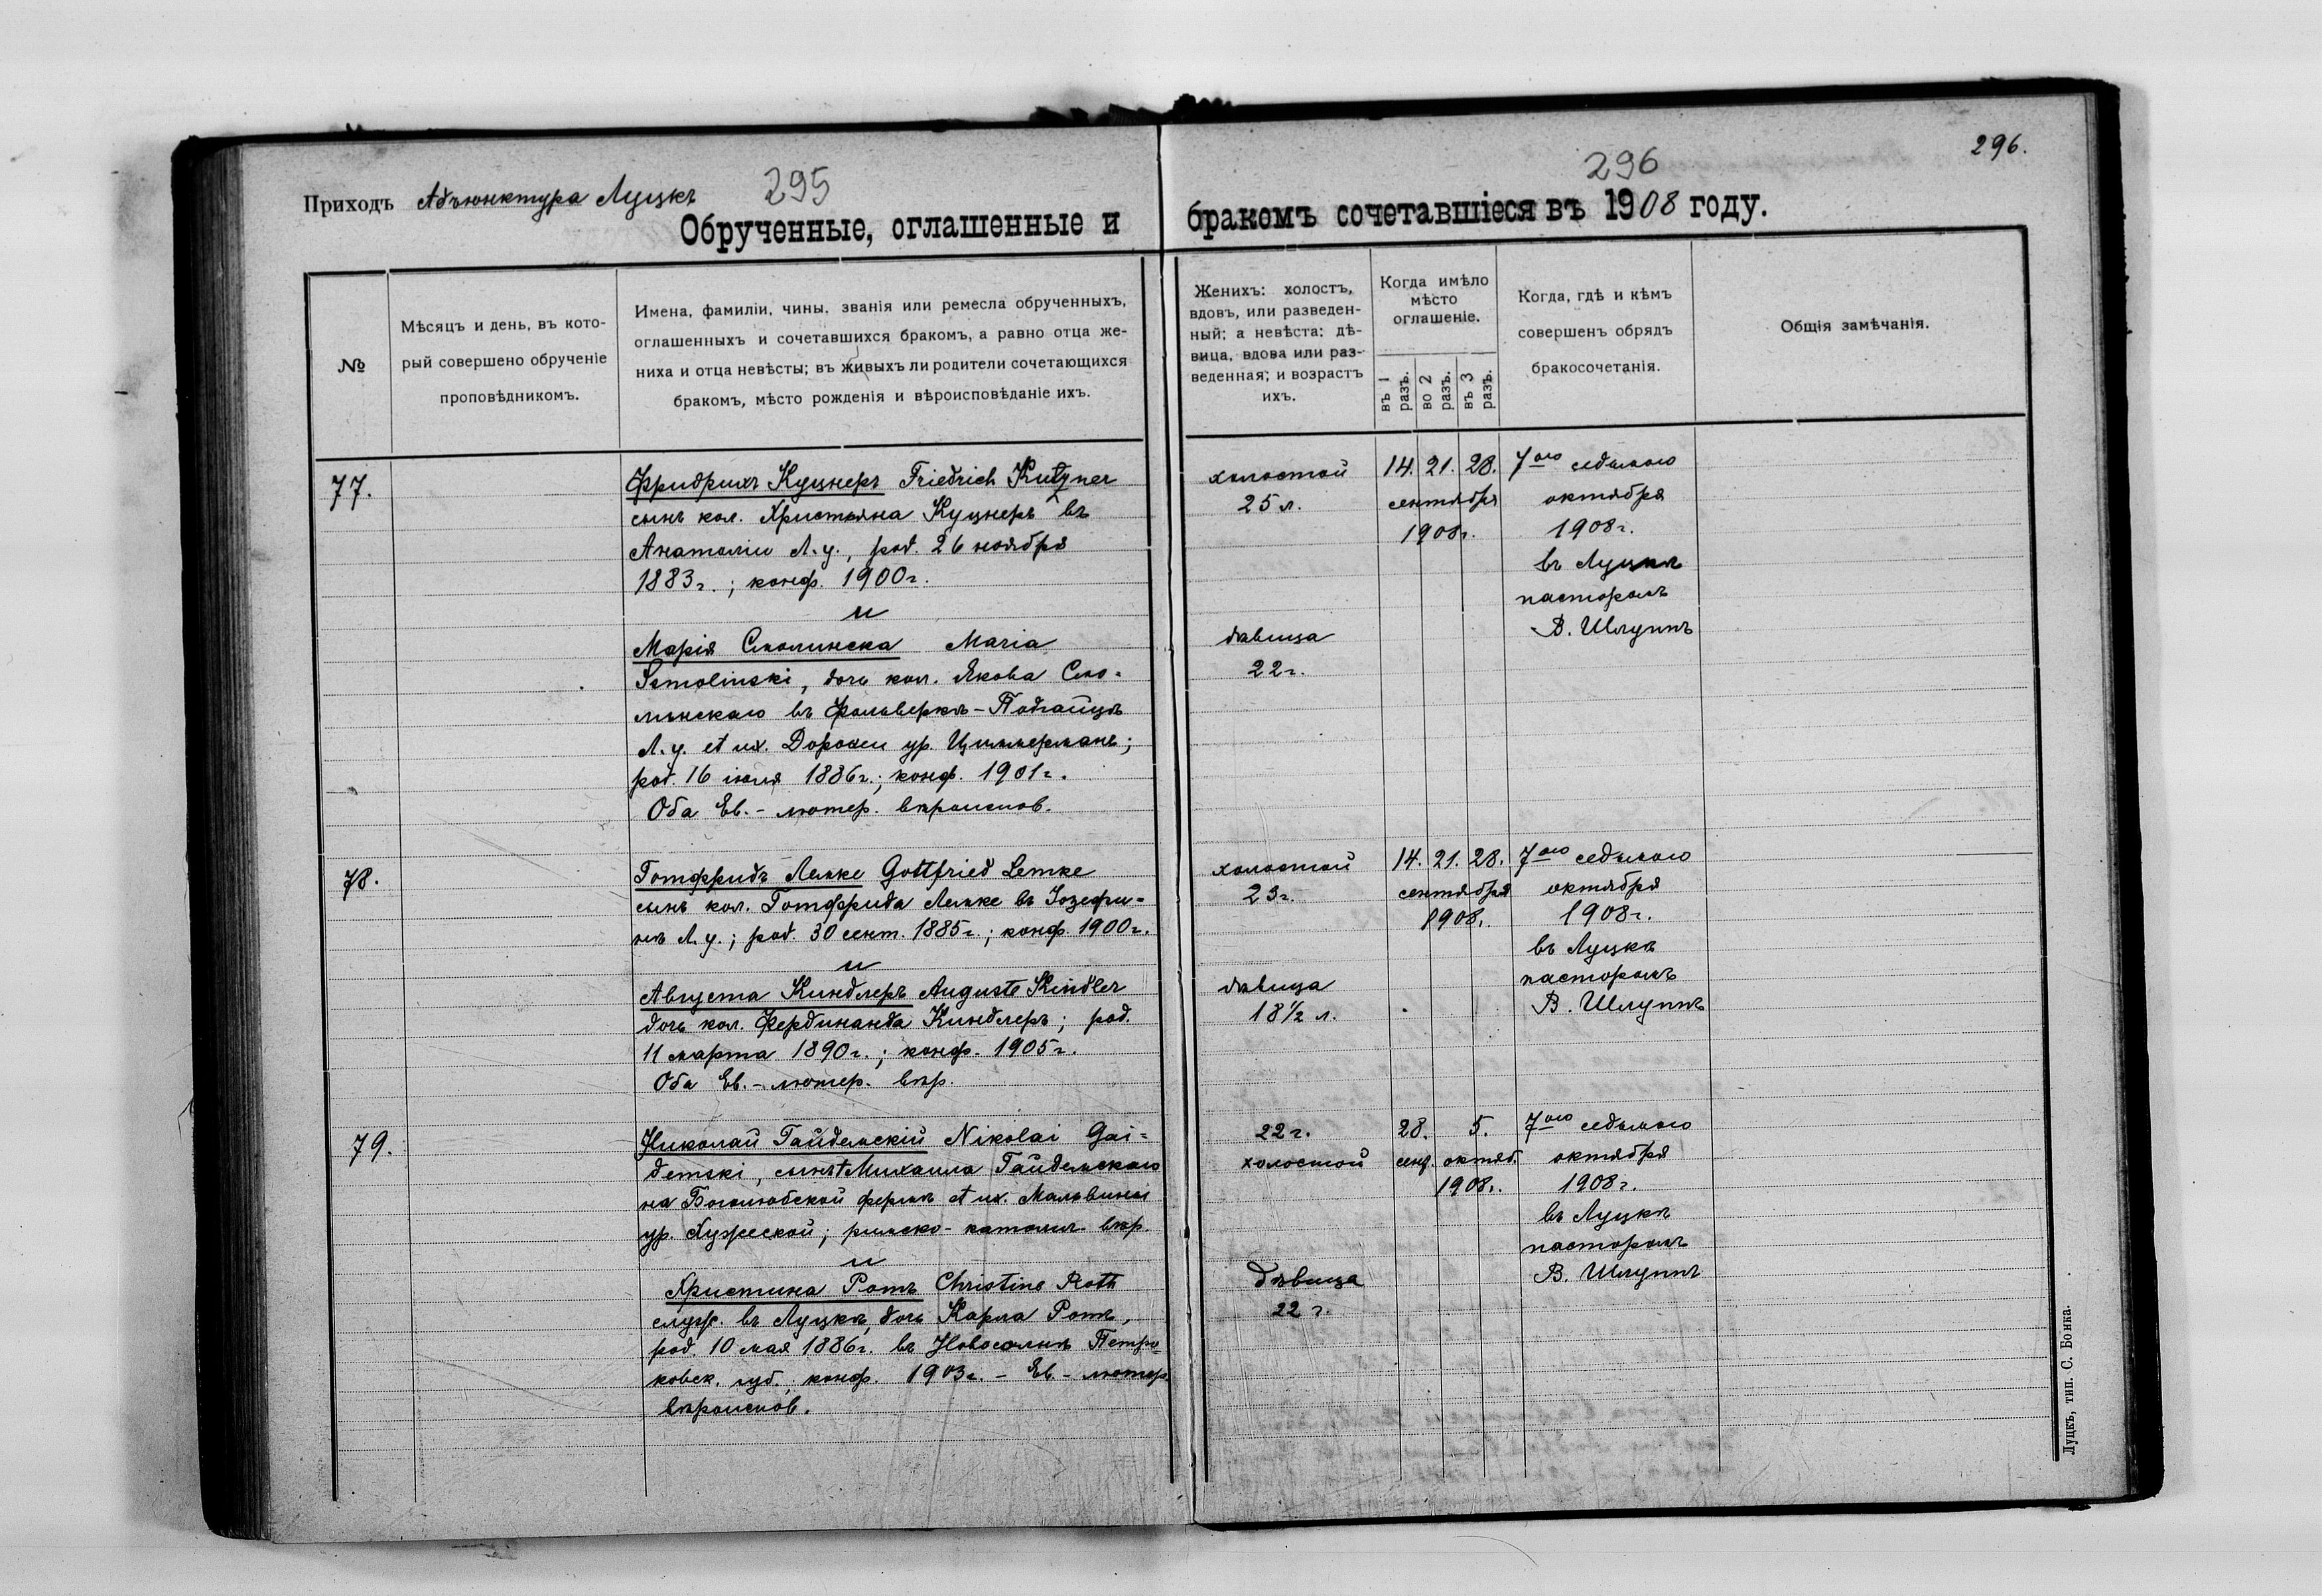 296.
295
296
Приходъ Адъюнктура Луцкъ
Обрученные, оглашенные и бракомъ сочетавшіеся въ 1908 году.
№
Мѣсяцъ и день, въ кото-
рый совершено обрученіе
проповѣдникомъ.
Имена, фамиліи, чины, званія или ремесла обрученныхъ,
оглашенныхъ и сочетавшихся бракомъ, а равно отца же-
ниха и отца невѣсты; въ живыхъ ли родители сочетающихся
бракомъ, мѣсто рожденія и вѣроисповѣданіе ихъ.
Женихъ: холостъ,
вдовъ, или разведен-
ный; а невѣста: дѣ-
вица, вдова или раз-
веденная; и возрастъ
ихъ.
Когда имѣло
мѣсто
оглашеніе.
въ 1
разъ.
во 2
разъ.
въ 3
разъ.
Когда, гдѣ и кѣмъ
совершенъ обрядъ
бракосочетанія.
Общія замѣчанія.
77.
Фридрихъ Куцнеръ Friedrich Kutzner
сынъ кол. Христьяна Куцнеръ въ
Анатоліи Л.у., род. 26 ноября
1883г.; конф. 1900г.
и
Марія Смолинска Maria
Smolinski, дочь кол. Якова Смо-
линскаго въ Фольверкѣ-Подгайцѣ
Л.у. et ux. Доротеи ур. Циммерманъ;
род. 16 іюля 1886г.; конф. 1901г.
Оба Ев.-лютер. вѣроиспов.
холостой
25 л.
дѣвица
22г.
14. 21. 28.
сентября
1908г.
7ого седьмого
октября
1908г.
въ Луцкѣ
пасторомъ
В. Шлуппъ
78.
Готфридъ Лемке Gottfried Lemke
сынъ кол. Готфрида Лемке въ Іозефи-
нѣ Л.у.; род. 30 сент. 1885г.; конф. 1900г.
и
Августа Киндлеръ Auguste Kindler
дочь кол. Фердинанда Киндлеръ; род.
11 марта 1890г.; конф. 1905г.
Оба Ев.-лютер. вѣр.
холостой
23г.
дѣвица
18½ л.
14. 21. 28.
сентября
1908.
7ого седьмого
октября
1908г.
въ Луцкѣ
пасторомъ
В. Шлуппъ
79.
Николай Гайдемскій Nikolai Gai-
demski, сынъ † Михаила Гайдемскаго
на Боголюбской фермѣ et ux. Мальвины
ур. римско-католич. вѣр.
и
Христина Ротъ Christine Roth
служ. въ Луцкѣ, дочь Карла Ротъ,
род. 10 мая 1886г. въ Петро-
ковск. губ.; конф. 1903г. - Ев.-лютер.
вѣроиспов.
22г.
холостой
дѣвица
22 г.
28. 5.
сент. октяб.
1908.
7ого седьмого
октября
1908г.
въ Луцкѣ
пасторомъ
В. Шлуппъ
Луцкъ, тип. С. Бонка.